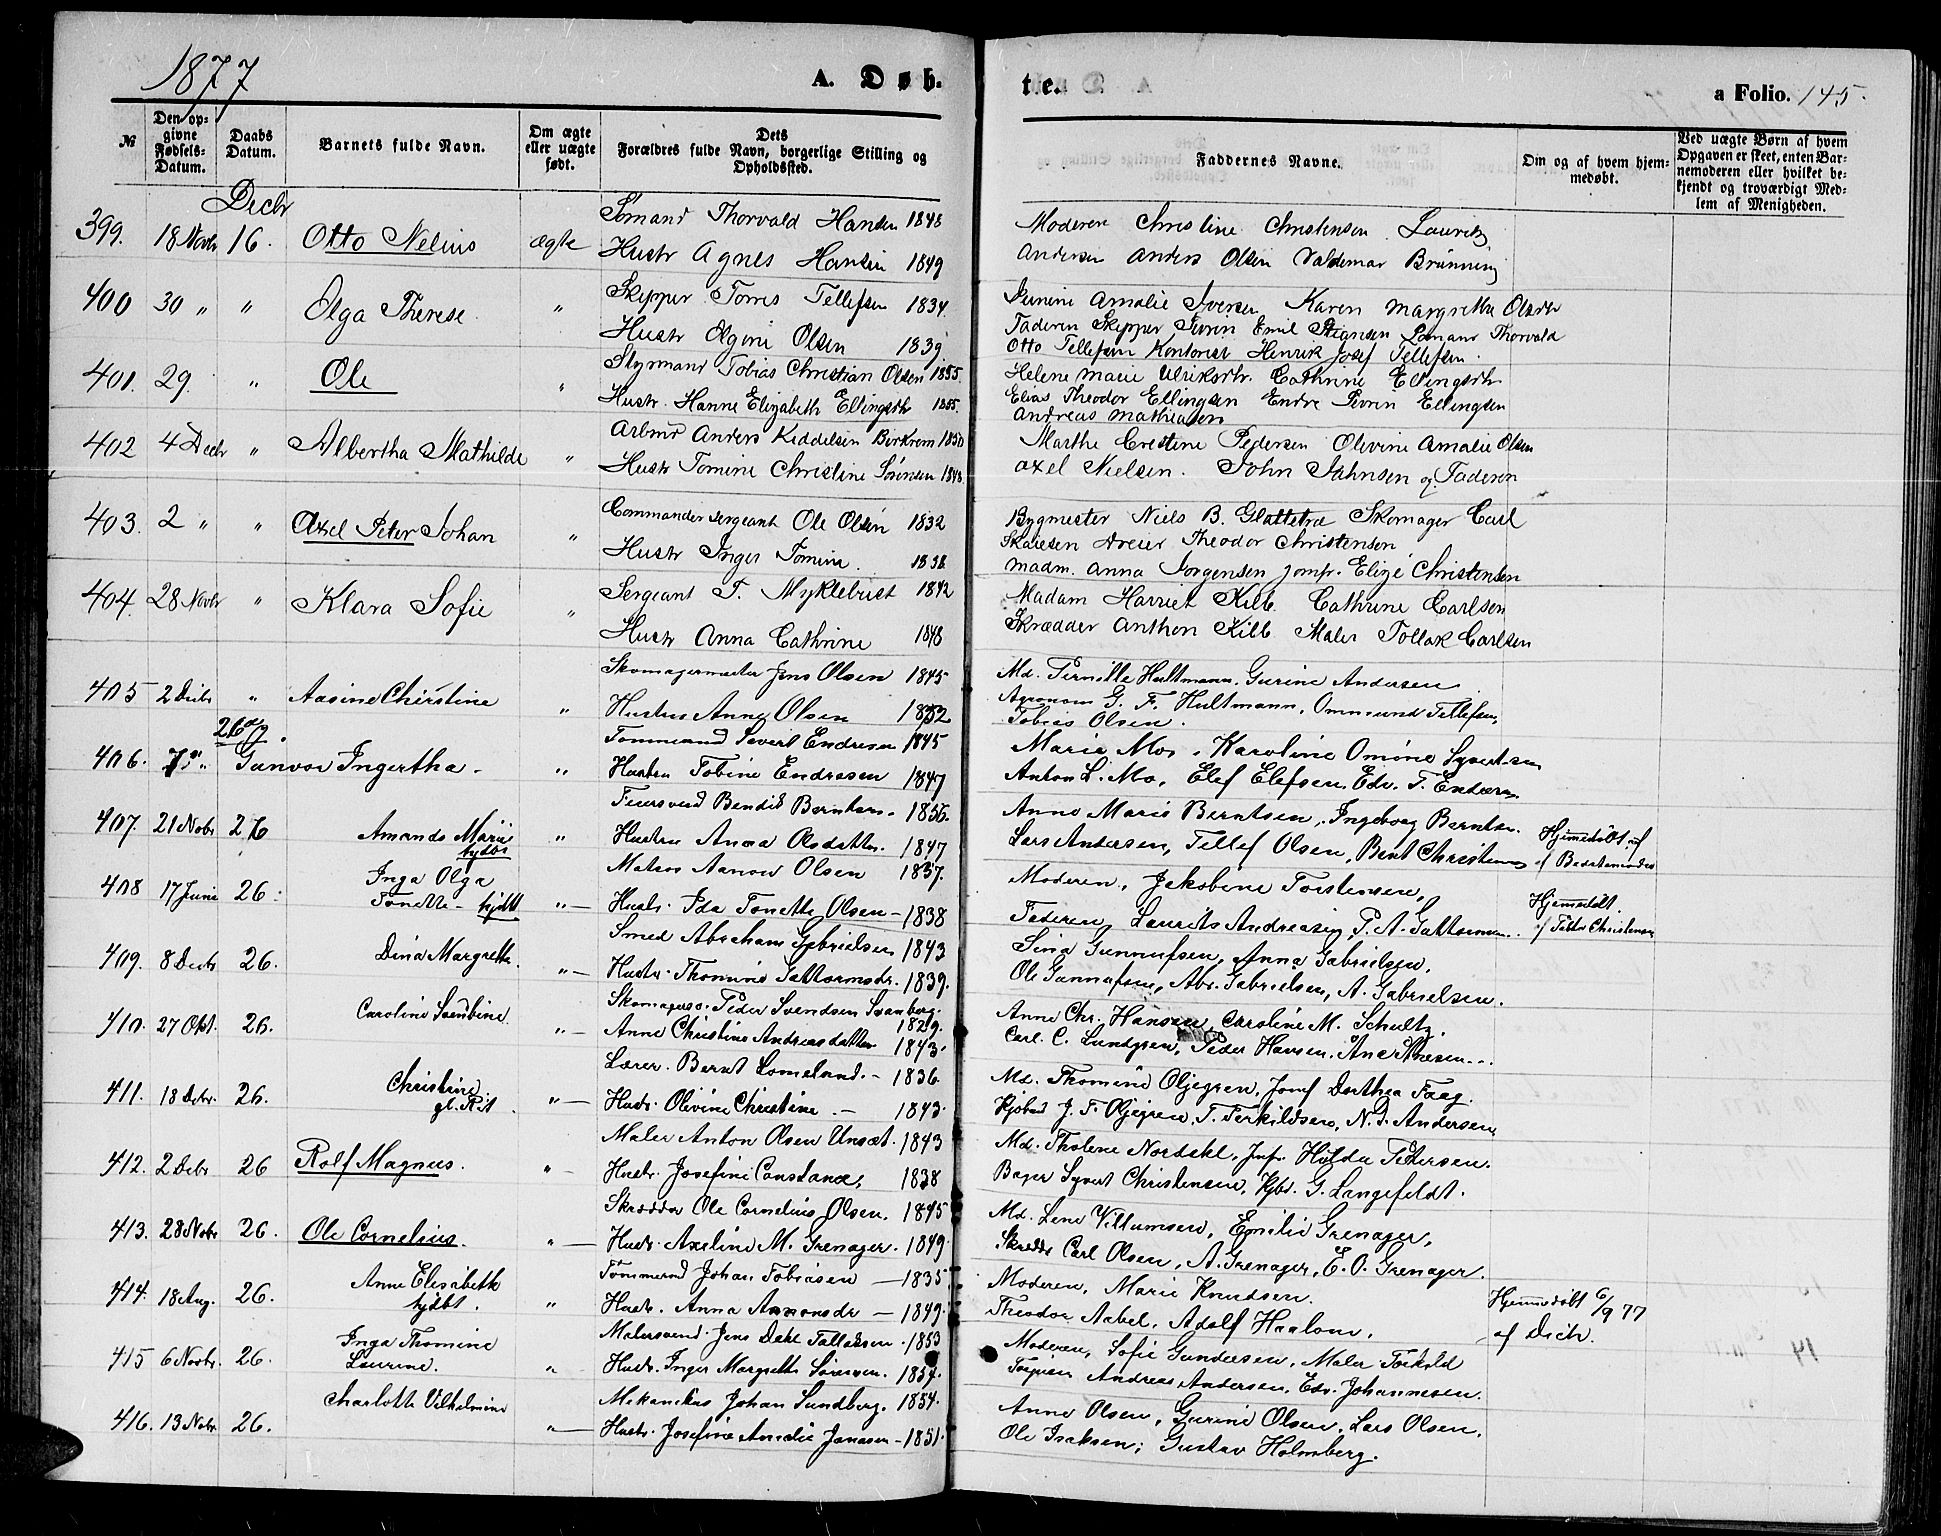 1877
A. Døb.
te.
a Folio. 145.
№
Den opgivne Fødsels-Datum.
Daabs Datum.
Barnets fulde Navn.
Om ægte eller uægte født.
Dets Forældres fulde Navn, borgerlige Stilling og Opholdssted.
Faddernes Navne.
Om og af hvem hjemmedøbt.
Ved uægte Børn af hvem Opgaven er skeet, enten Barnemoderen eller hvilket bekjendt og troværdigt Medlem af Menigheden.
Decbr
399. 18 Novbr 16. Otto Nelius ægte Sømand Thorvald Hansen 1848
Hustr Agnes Hansen 1849
Moderen Christine Christensen Lauritz
Andersen Anders Olsen Valdemar Brünning
400 30 " " Olga Therese " Skipper Torres Tellefsen 1834
Hustr Elgine Olsen 1839
Karen Margrethe Olsdtr
Amalie Iversen
Faderen Skipper Sørin Emil Stiansen Sømand Thorvald
Otto Tellefsen Kontorist Henrik Josef Tellefsen.
401. 29. " Ole " Styrmand Tobias Christian Olsen 1855.
Hustr. Hanne Elizabeth Ellingsdtr 1855.
Helene Marie Ulriksdtr. Cathrine Ellingsdtr
Elias Theodor Ellingsen Endre Sevrin Ellingsen
Andreas Mathiasen
402 4 Decbr " Albertha Mathilde " Arbmd Anders Kiddelsen Birkrem 1850
Hustr Tomine Christine Sørensen 1848.
Marthe Crestine Pedersen Olevine Amalie Olsen
Axel Nielsen. John Jahnsen og Faderen
403. 2 " " Axel Peter Johan " Commandersergeant Ole Olsen 1832
Hustr Inger Tomine. 1838
Bygmester Niels B. Glattetre Skomager Carl
Dreier Theodor Christensen
Madm. Anna Jørgensen Jomfr. Elize Christensen
404. 28 Novbr " Klara Sofie " Sergeant T. Myklebust 1842
Hustr Anna Cathrine 1848
Madam Harriet Kilb. Cathrine Carlsen
Skrædder Anthon Kilb Maler Tollak Carlsen
405 2 Decbr " Aasine Christine " Skomagermester Jens Olsen 1845
Hustru Anne Olsen 1852
Md. Pernille Hultmann, Gurine Andersen
Agronom G. F. Hultmann, Ommund Tellefsen,
Tobias Olsen.
406. Gunvor Ingertha. " Tømmermd Severt Endresen 1845
Hustru Tobine Endresen 1847
Marie Mo, Karoline Omine Syvertsen
Anton L. Mo, Elef Elefsen, Edv. T. Endresen
407. 21 Novbr 26 Amanda Marie hjdbt " Feiersvend Bendik Berntsen. 1856.
Hustru Anna Olsdatter. 1847
Anne Marie Berntsen, Ingeborg Berntsen.
Lars Andersen, Tellef Olsen, Bent Christensen
Hjemmedøbt af
408 17 Juni 26. Inga Olga
Tonette - hjdbt "— Matros Aanon Olsen 1837.
Hustr. Ida Tonette Olsen - 1838
Moderen, Jakobine Torstensen,
Faderen, Laurits Andreasen, P. A. Guttormsen.
Hjemmedøbt
af Peder Christensen
409. 8 Decbr 26. Dina Margrethe. "— Smed Abraham Gabrielsen 1843
Hustr. Thomine Guttormsdr. 1839.
Sina Gunnufsen, Anna Gabrielsen,
Ole Gunnufsen, Abr. Gabrielsen, A. Gabrielsen.
410. 27 Okt. 26. Caroline Svenbine. "— Skomagersv. Peder Svendsen Svanberg. 1829.
Anne Christine Andreasdatter 1843.
Anne Chr. Hansen, Caroline M. Schultz,
Carl C. Lundgren, Peder Hansen,
411. 18 Decbr. 26. Christine
"— Lærer. Bernt Lomeland. - 1836
Hustr. Olivine Christine. - 1843.
Md. Thomine Oljegren, Jomf Dorthea Faag.
Kjøbmd J. F. Oljegren, T. Terkildsen, N. J. Andersen,
412. 2 Decbr 26 Rolf Magnus. "- Maler Anton Olsen Unsæt. 1843
Hustr. Josefine Constance, 1838
Md. Tholene Nordahl, Jmfr. Hilda Petersen.
Bager Syvert Christensen, Kjbd. G. Langefeldt.
413. 28 Novbr 26. Ole Cornelius. "— Skrædder Ole Cornelius Olsen. 1845
Hustr. Axeline M. Grenager. 1849.
Md. Lene Villumsen, Emilie Grenager,
Skrædd. Carl Olsen, A. Grenager, E. O. Grenager.
414. 18 Aug. 26. Anne Elisabeth
hjdbt. " Tømmermd Johan Tobiasen — 1835
Hustr. Anna Aanonsdr — 1849.
Moderen, Marie Knudsen.
Theodor Aabel, Adolf Haaland.
Hjemmedøbt 6/9 77
af Dick.
415 6 Novbr. 26. Inga Thomine
Laurine. " Malersvend. Jens Dahl Tallaksen. 1853
Hustr. Inger Margrethe Sørensen. 1854.
Moderen, Sofie Gundersen, Maler Torkild
Andreas Andersen, Edv. Johannesen.
416. 13 Novbr. 26. Charlotte Vilhelmine "— Mekanikus Johan Sundberg. 1854.
Hustr. Josefine Amalie Jonassen - 1851.
Anne Olsen, Gurine Olsen, Lars Olsen,
Ole Isaksen, Gustav Holmberg.